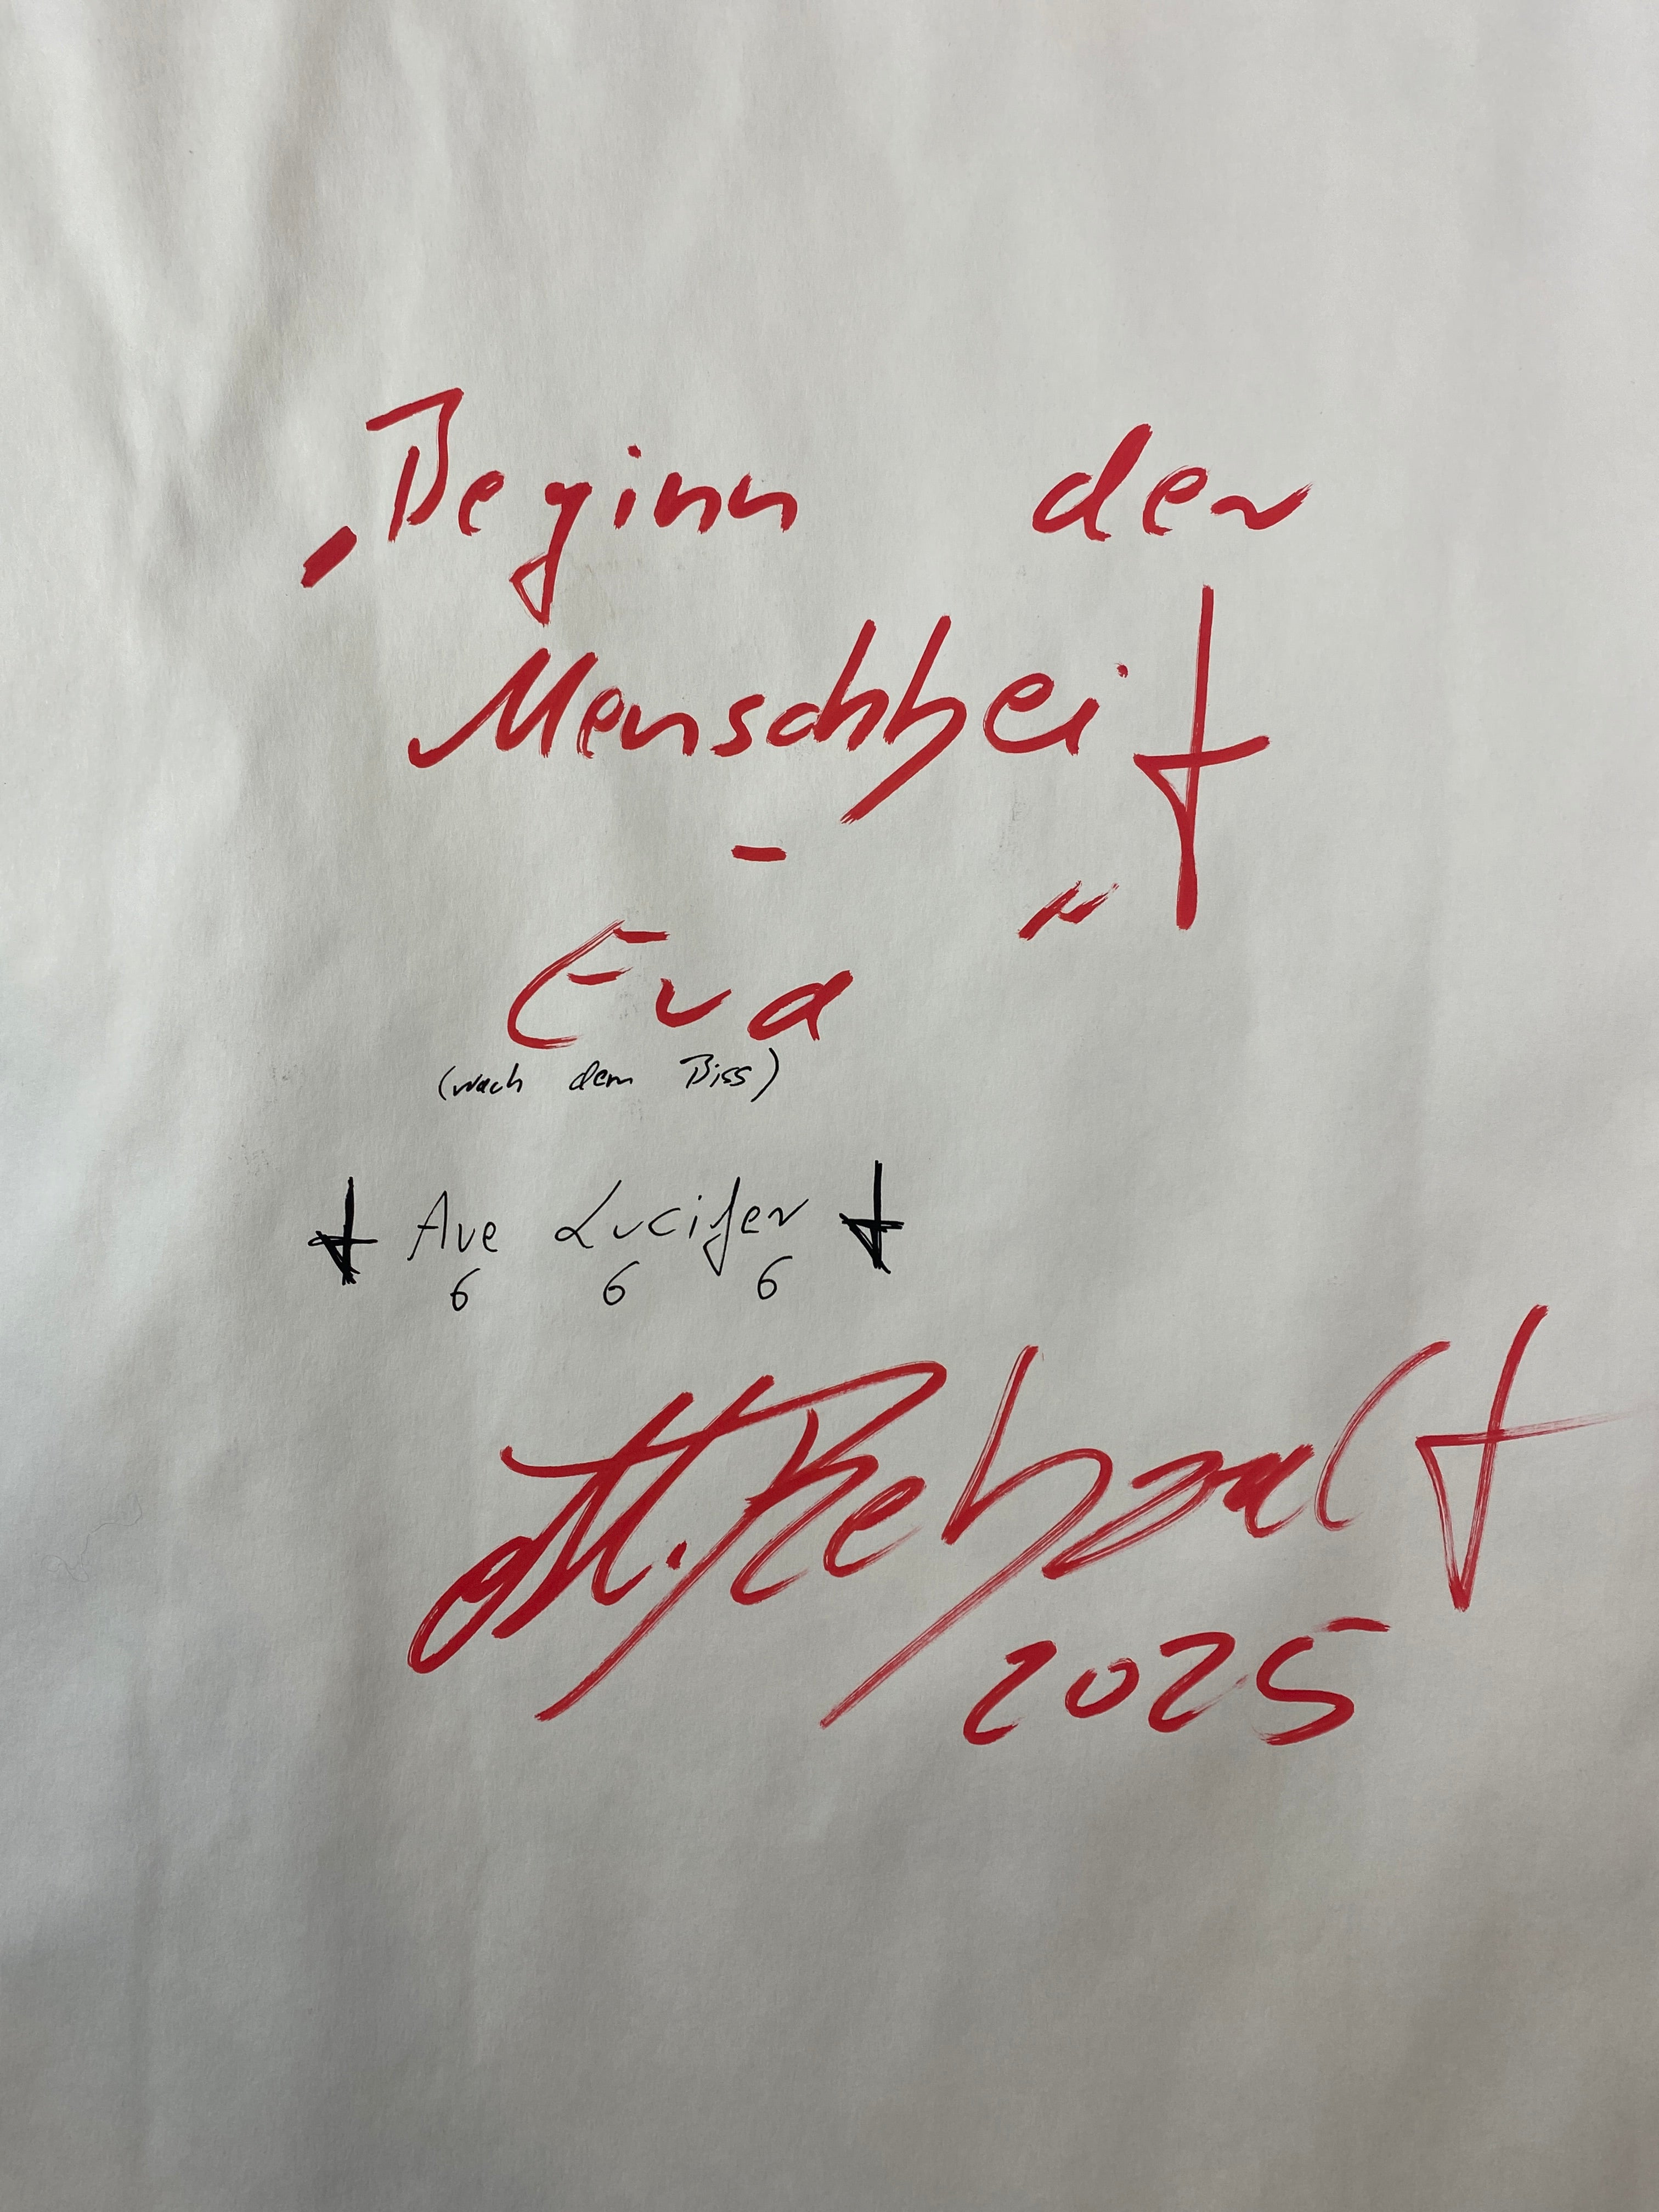 „Beginn der
Menschheit
-
Eva"
(nach dem Biss)
Ave Lucifer
6 6 6
2025